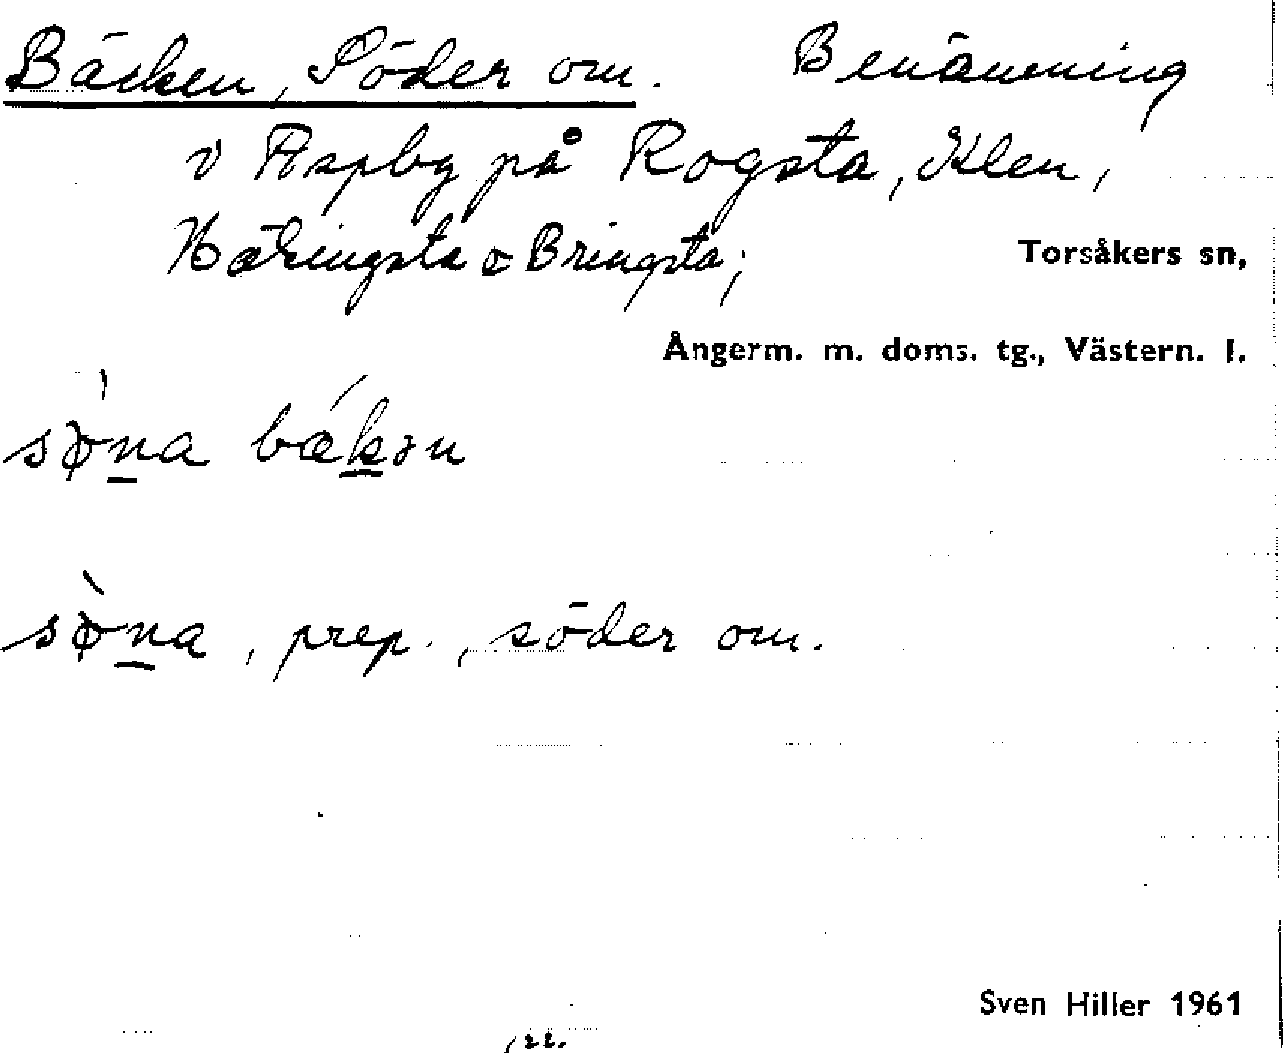 Bäcken, Söder om. Benämning
i Aspby på Rogsta, Klen,
Häringsta o Bringsta; Torsåkers sn,
Ångerm. m. doms. tg., Västern. l.
sø̀na bǽkən
sø̀na, prep., söder om.
Sven Hiller 1961